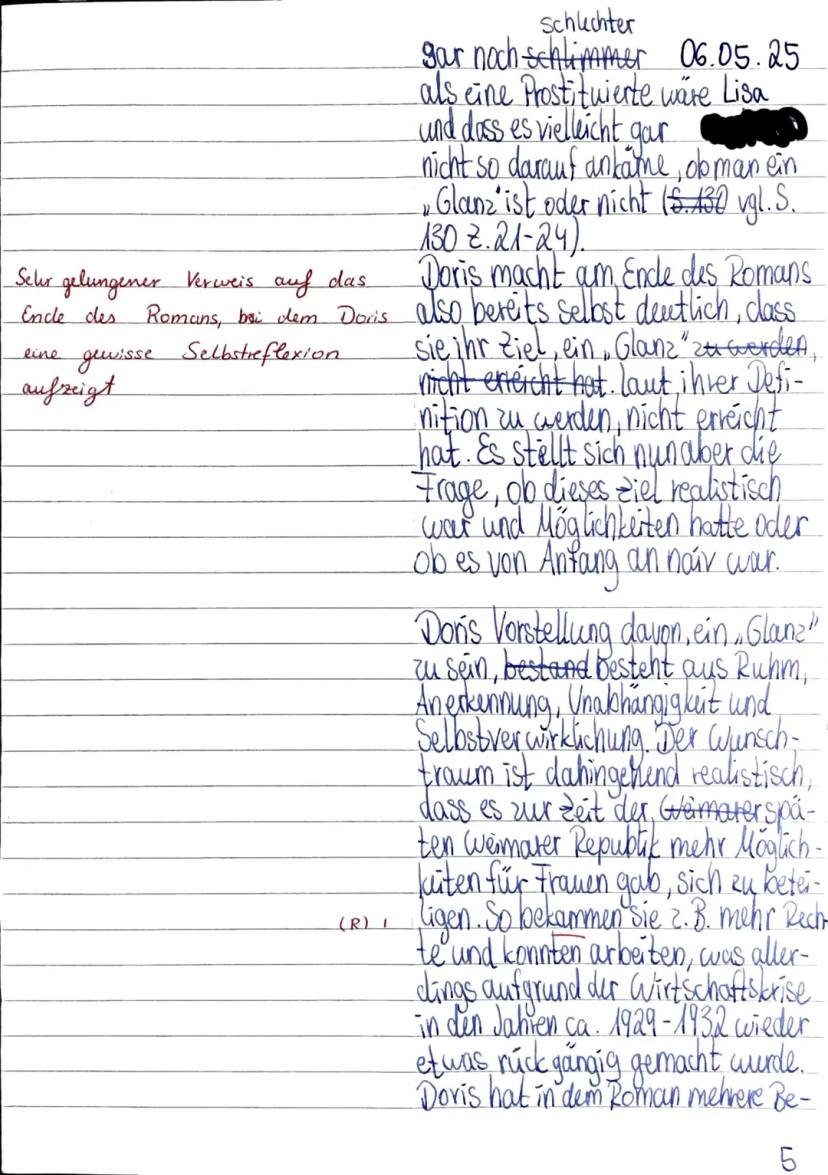 schlechter
gar noch schlimmer 06.05.25
als eine Prostituierte wäre Lisa
und dass es vielleicht gar
nicht so darauf ankäme, ob man ein
„Glanz" ist oder nicht (S. 130 vgl. S.
130 Z. 21-24).
Doris macht am Ende des Romans
also bereits selbst deutlich, dass
sie ihr Ziel, ein „Glanz" zu werden,
nicht erreicht hat. laut ihrer Defi-
nition zu werden, nicht erreicht
hat. Es stellt sich nun aber die
Frage, ob dieses Ziel realistisch
war und Möglichkeiten hatte oder
ob es von Anfang an naiv war.
Sehr gelungener Verweis auf das
Ende des Romans, bei dem Doris
eine gewisse Selbstreflexion
aufzeigt
Doris Vorstellung davon, ein „Glanz"
zu sein, bestand besteht aus Ruhm,
Anerkennung, Unabhängigkeit und
Selbstverwirklichung. Der Wunsch-
traum ist dahingehend realistisch,
dass es zur Zeit der Weimarer spä-
ten Weimarer Republik mehr Möglich-
keiten für Frauen gab, sich zu betei-
ligen. So bekammen sie z.B. mehr Rech-
te und konnten arbeiten, was aller-
dings aufgrund der Wirtschaftskrise
in den Jahren ca. 1929-1932 wieder
etwas rückgängig gemacht wurde.
Doris hat in dem Roman mehrere Be-
(R) I
5